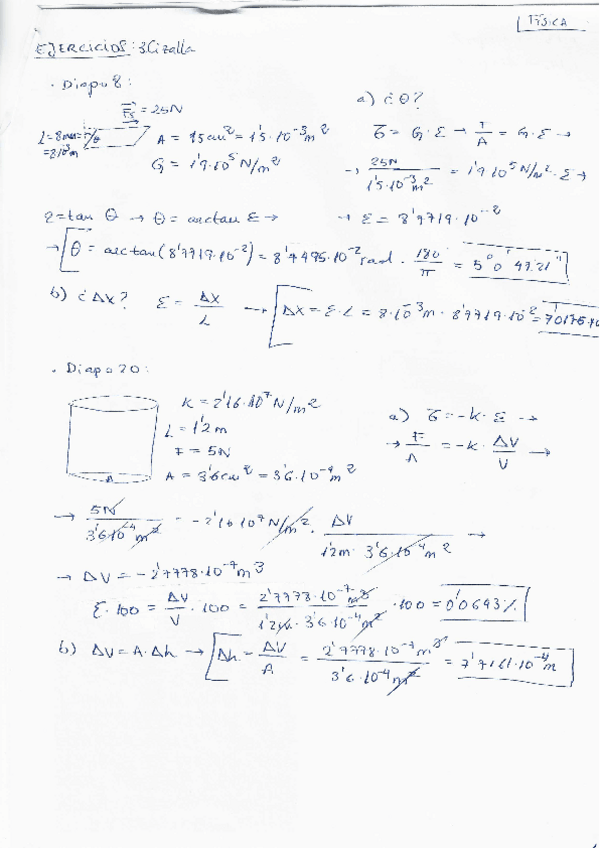 FÍSICA
EJERCICIOS: 3. Cizalla
· Diapo 8:
a) ¿θ?
F = 25N
L = 8mm = 8·10⁻³m
A = 15cm² = 1'5·10⁻³m²
σ = G·ε → F/A = G·ε →
G = 1'9·10⁵ N/m²
→ 25N / 1'5·10⁻³m² = 1'9·10⁵ N/m² · ε →
ε = tan θ → θ = arctan ε →
→ ε = 8'7719·10⁻²
→ θ = arctan(8'7719·10⁻²) = 8'7495·10⁻² rad · 180/π = 5° 0' 47.21''
b) ¿Δx? ε = Δx/L → Δx = ε·L = 8·10⁻³m · 8'7719·10⁻² =
· Diapo 20:
K = 2'16·10⁷ N/m²
L = 1'2m
F = 5N
A = 3'6cm² = 3'6·10⁻⁴m²
A
a) σ = -k·ε →
→ F/A = -k · ΔV/V →
→ 5N / 3'6·10⁻⁴m² = -2'16·10⁷ N/m² · ΔV / 1'2m · 3'6·10⁻⁴m² →
→ ΔV = -2'7778·10⁻⁷m³
ε·100 = ΔV/V · 100 = 2'7778·10⁻⁷m³ / 1'2m · 3'6·10⁻⁴m² · 100 = 0'0643%
b) ΔV = A·Δh → Δh = ΔV/A = 2'7778·10⁻⁷m³ / 3'6·10⁻⁴m² = 7'7161·10⁻⁴m